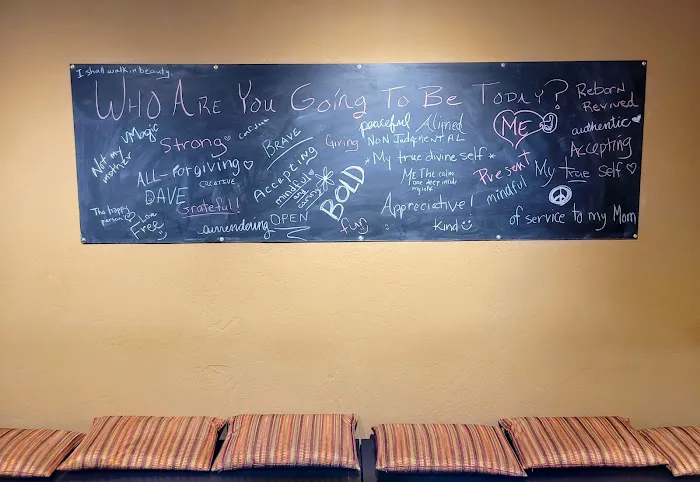 I shall walk in beauty.
WHO ARE YOU GOING TO BE TODAY?
Magic
Not my
mother
Strong
ALL-forgiving
CREATIVE
DAVE
Grateful!
The happy
person
Love
Free
surrendering
OPEN
BRAVE
Accepting
mindful
BOLD
Giving
fun
peaceful
Aligned
NON JUDGMENTAL
*My true divine self*
Me The calm
one deep inside
myself
Appreciative!
Kind
ME
Present
mindful
Reborn
Revived
authentic
Accepting
My true self
of service to my Mom